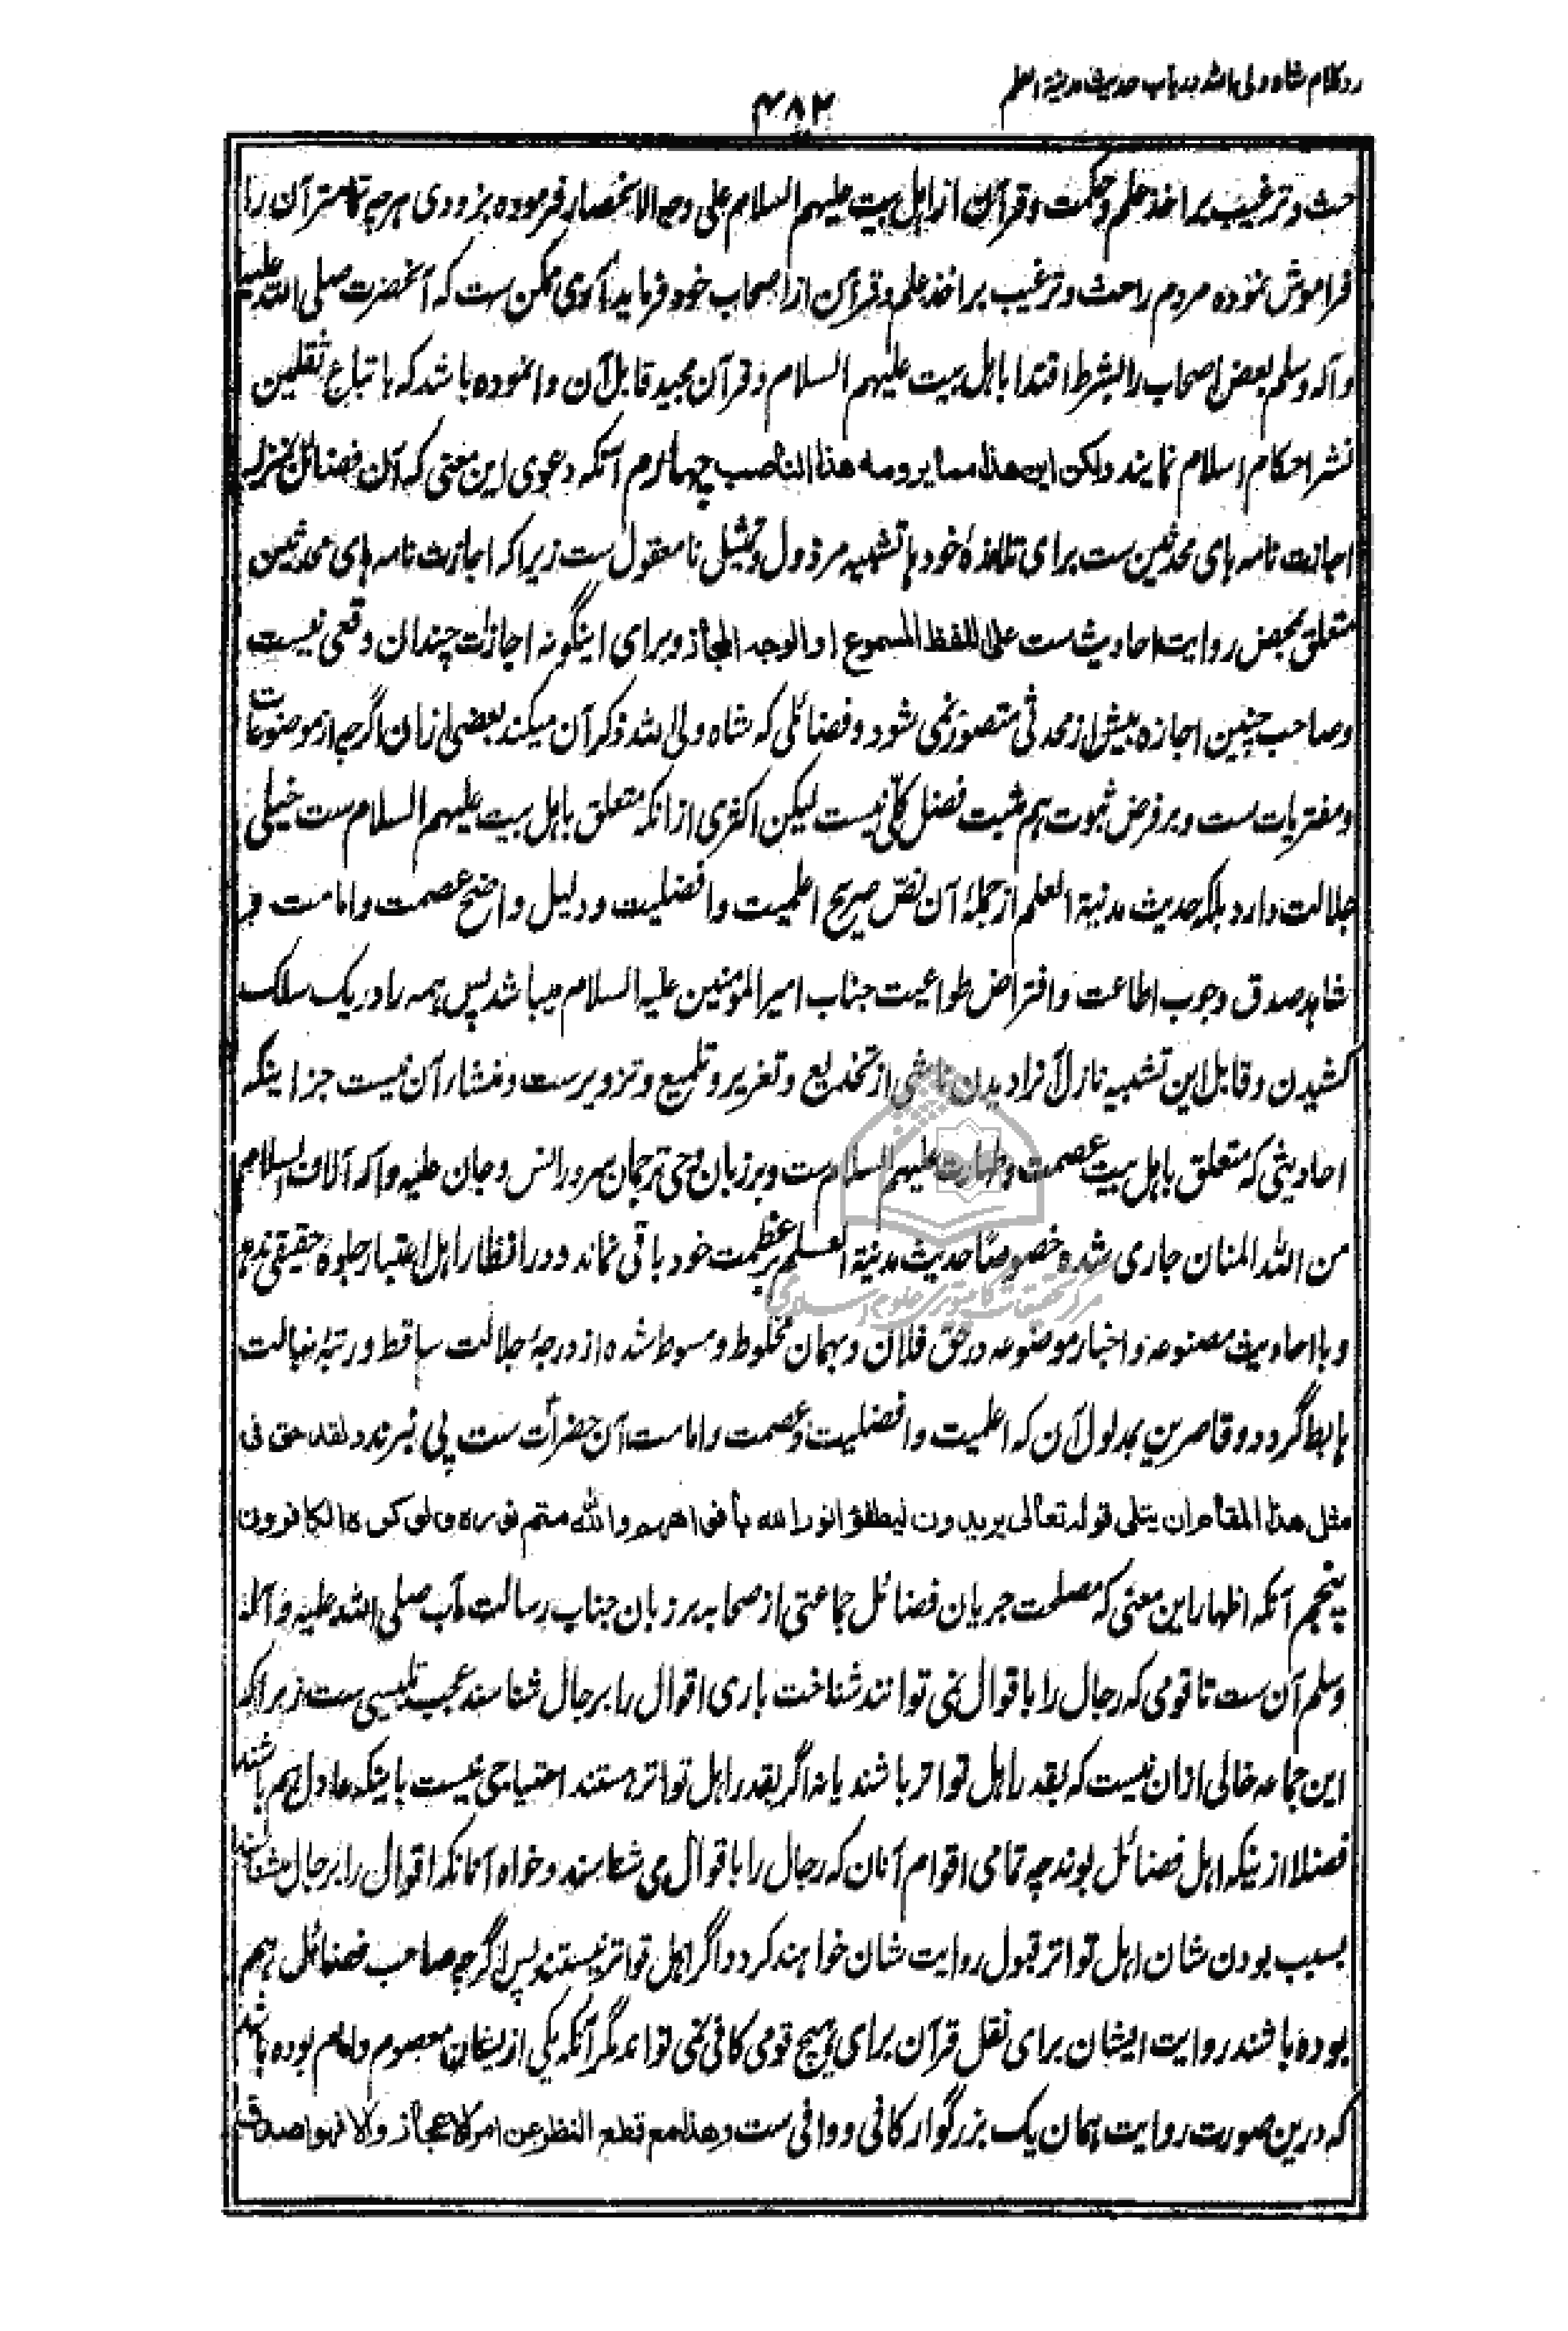 رد کلام شاه ولی الله در باب حدیث مدینة العلم
۴۸۲
حث و ترغیب بر اخذ علم و حکمت و قرآن از اهل بیت علیهم السلام علی وجه الانحصار فرموده بزودی هر چه تمامتر آن را
فراموش نموده مردم را حث و ترغیب بر اخذ علم و قرآن از اصحاب خود فرماید آری ممکن ست که آنحضرت صلی الله علیه
و آله و سلم بعض اصحاب را بشرط اقتدا باهل بیت علیهم السلام و قرآن مجید قابل آن وانموده باشد که باتباع ثقلین
نشر احکام اسلام نمایند ولکن این هذا مما یرومه هذا الناصب چهارم آنکه دعوی این معنی که آن فضائل بمنزله
اجازت نامه های محدثین ست برای تلامذهٔ خود ها تشبیه مرذول و تمثیل نا معقول ست زیرا که اجازت نامه های محدثین
متعلق بمحض روایت احادیث ست علی اللفظ المسموع او الوجه المجاز و برای اینگونه اجازت چندان وقعی نیست
و صاحب چنین اجازه بیش از محدثی متصور نمی شود و فضائلی که شاه ولی الله ذکر آن میکند بعضی ازان اگرچه از موضوعات
و مفتریات ست و بر فرض ثبوت هم مثبت فضل کلی نیست لیکن اکثری ازانکه متعلق باهل بیت علیهم السلام ست خیلی
جلالت دارد بلکه حدیث مدینة العلم از جملهٔ آن نص صریح اعلمیت و افضلیت و دلیل واضح عصمت و امامت و
شاهد صدق وجوب اطاعت و افتراض طواعیت جناب امیر المؤمنین علیه السلام میباشد پس همه را در یک سلک
کشیدن و قابل این تشبیه نازل آنرا دیدن ناشی از تخدیع و تغریر و تلمیع و تزویر ست و منشار آن نیست جز اینکه
احادیثی که متعلق باهل بیت عصمت و طهارت علیهم السلام ست و بر زبان وحی ترجمان سرور انس و جان علیه و آله آلاف السلام
من الله المنان جاری شده خصوصًا حدیث مدینة العلم بر عظمت خود باقی نماند و در انظار اهل اعتبار جلوهٔ حقیقی ندهد
و با احادیث مصنوعه و اخبار موضوعه در حق فلان و بهمان مخلوط و مسوط شده از درجهٔ جلالت ساقط و رتبهٔ نبالت
هابط گردد و قاصرین بمدلول آن که اعلمیت و افضلیت و عصمت و امامت آن حضرات ست پی نبرند و لقد حق فی
مثل هذا المقام ان یتلی قوله تعالی یریدون لیطفؤا نور الله بأفواههم والله متم نوره ولو کره الکافرون
پنجم آنکه اظهار این معنی که مصلحت جریان فضائل جماعتی از صحابه بر زبان جناب رسالت مآب صلی الله علیه و آله
و سلم آن ست تا قومی که رجال را باقوال نمی توانند شناخت باری اقوال را برجال شناسند عجب تلبیسی ست زیرا که
این جماعه خالی ازان نیست که بقدر اهل تواتر باشند یا نه اگر بقدر اهل تواتر هستند احتیاجی نیست باینکه عادل هم باشند
فضلا ازینکه اهل فضائل بوند چه تمامی اقوام آنان که رجال را باقوال می شناسند و خواه آنانکه اقوال را برجال شناسند
بسبب بودن شان اهل تواتر قبول روایت شان خواهند کرد و اگر اهل تواتر نیستند پس اگرچه صاحب فضائل هم
بوده باشند روایت ایشان برای نقل قرآن برای هیچ قومی کافی نمی تواند مگر آنکه یکی ازیشان معصوم و امام بوده باشد
که درین صورت روایت همان یک بزرگوار کافی و وافی ست و هذا مع قطع النظر عن امر الاعجاز والا فهو اصدق